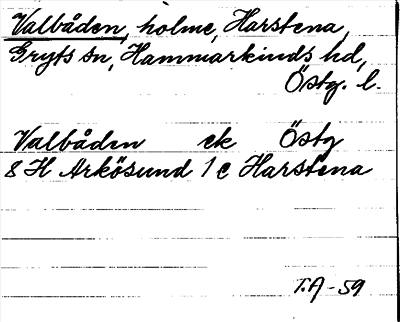 Valbåden, holme, Harstena,
Gryts sn, Hammarkinds hd,
Östg. l.
Valbåden ek Östg
8 H Arkösund 1 c Harstena
T.A-59